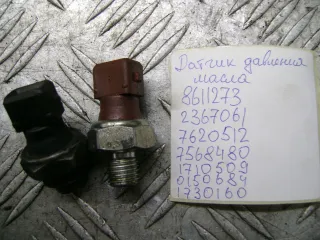 Датчик давления
масла
8611273
2367061
7620512
7568480
1710509
0150684
1730160